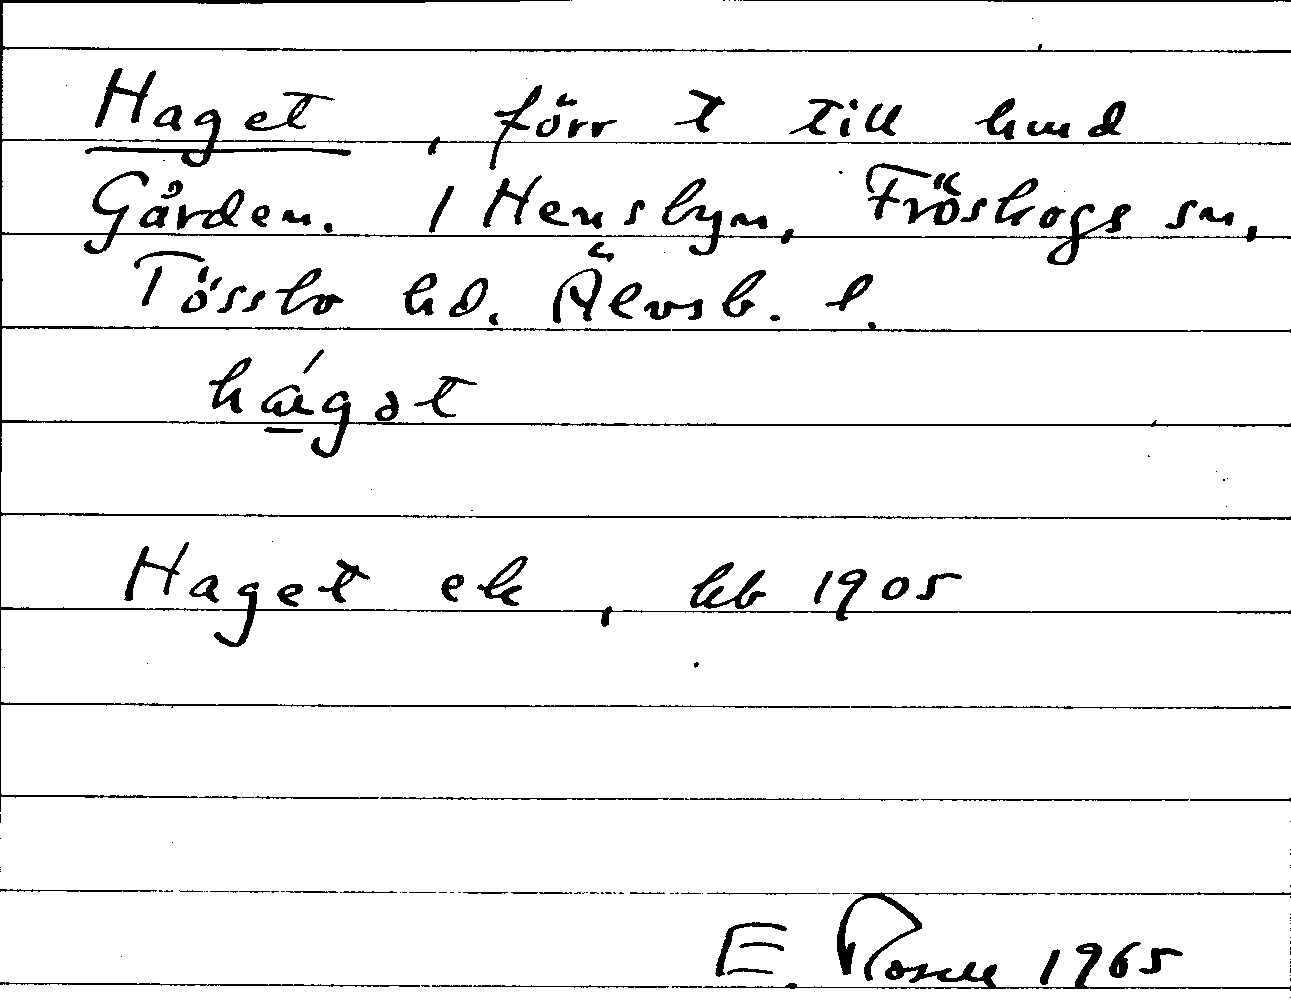 Haget, förr t till hmd
Gården. 1 Hensbyn, Fröskogs sn,
Tössbo hd. Älvsb. l.
há̱gət
Haget ek, kb 1905
E. Rosell 1965